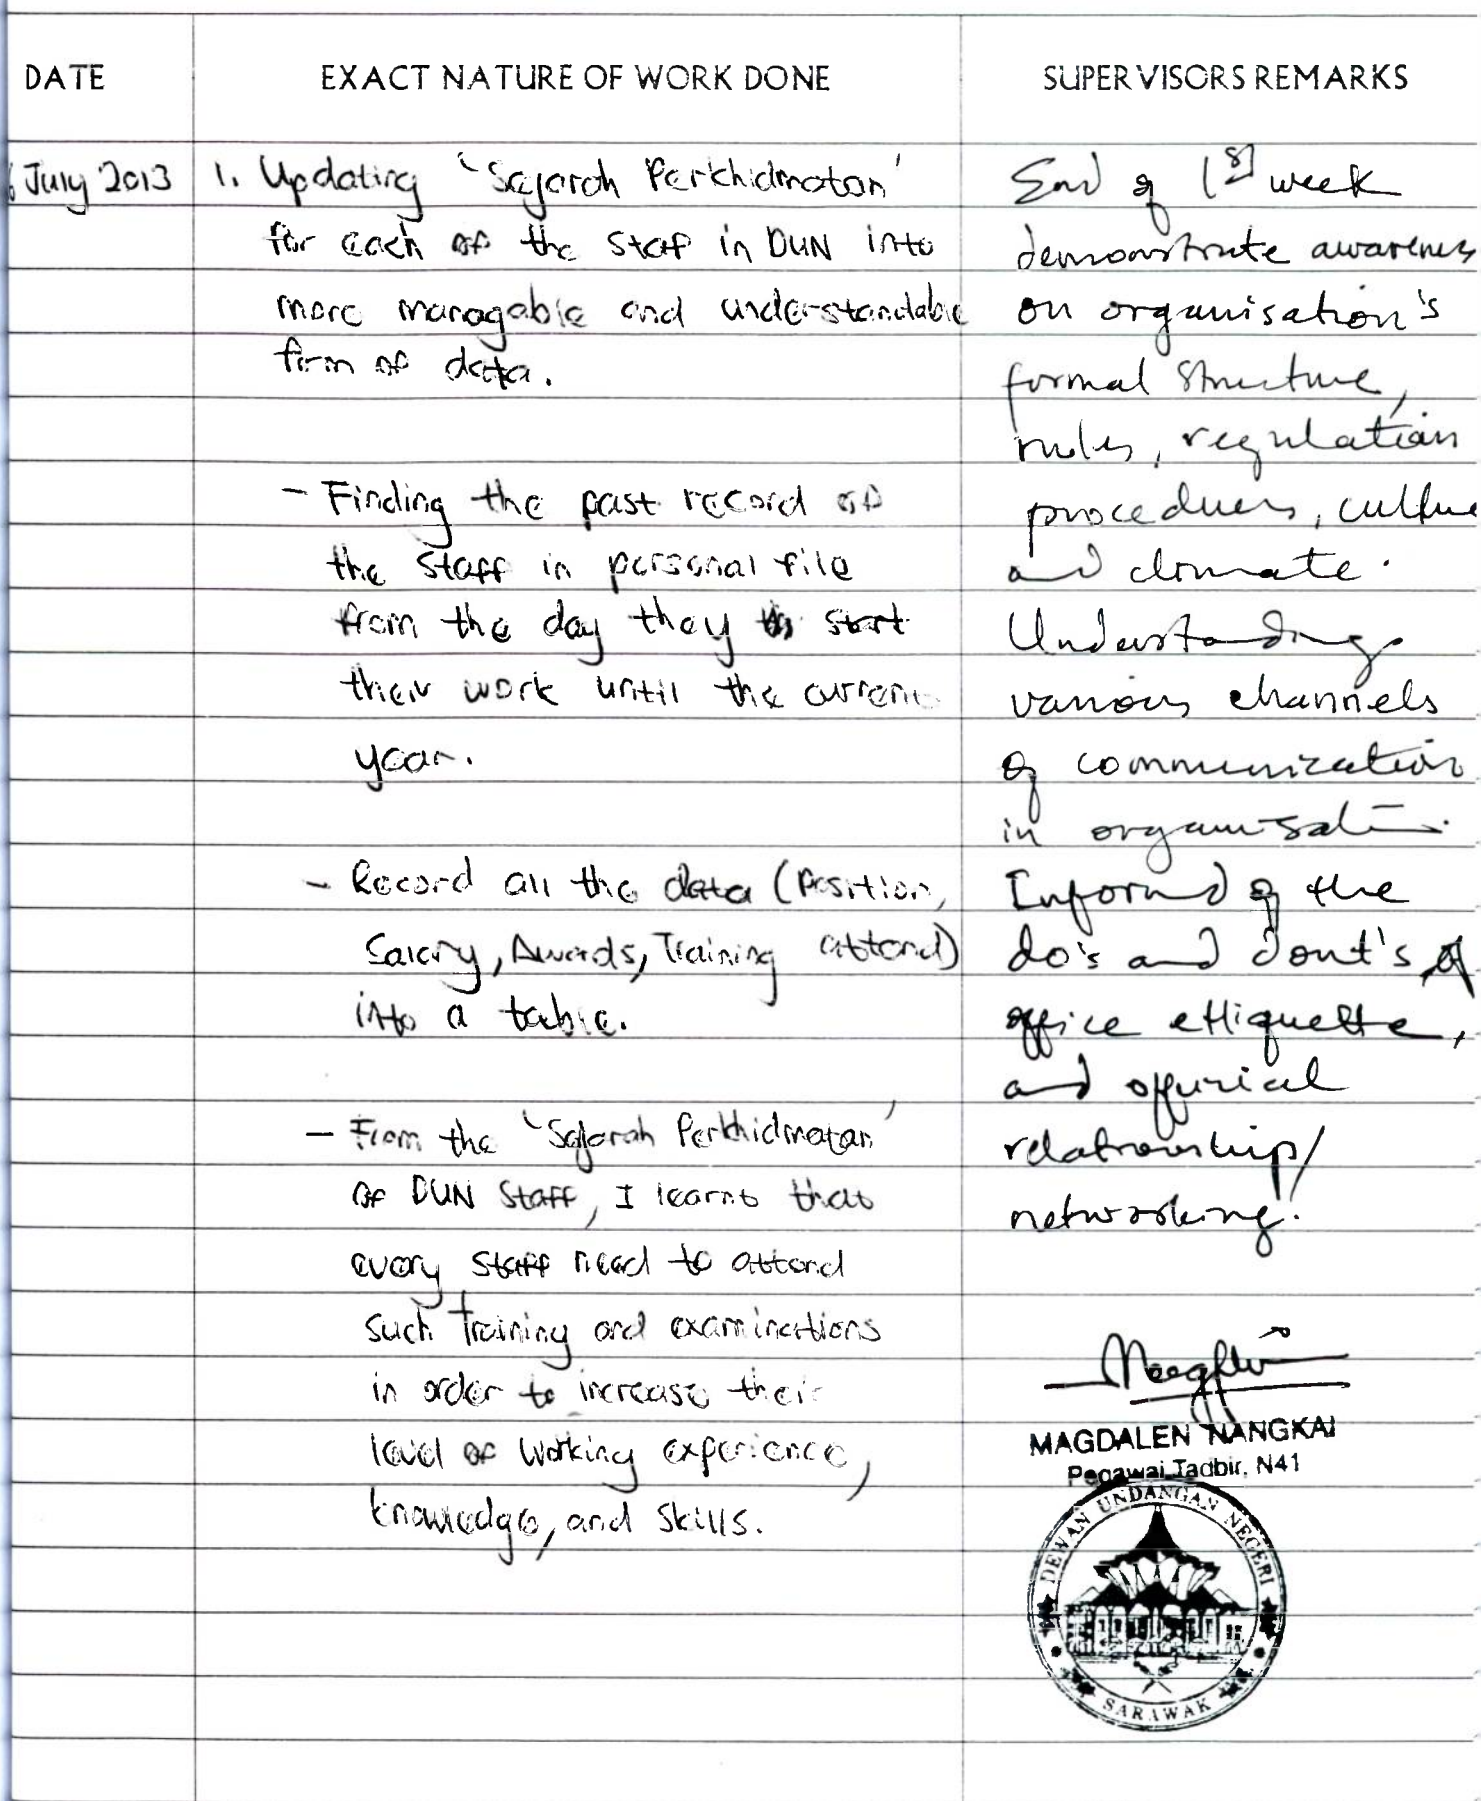 DATE
EXACT NATURE OF WORK DONE
SUPERVISORS REMARKS
July 2013
1. Updating 'Sejarah Perkhidmatan'
for each of the staff in DUN into
more managable and understandable
form of data.
- Finding the past record of
the staff in personal file
from the day they start
their work until the current
year.
- Record all the data (Position,
Salary, Awards, Training attend)
into a table.
- From the 'Sejarah Perkhidmatan'
of DUN Staff, I learnt that
every staff need to attend
such training and examinations
in order to increase their
level of working experience,
knowledge, and skills.
End of 1st week
demonstrate awareness
on organisation's
formal structure,
rules, regulation
procedures, culture
and climate.
Understanding
various channels
of communication
in organisation.
Informed of the
do's and dont's of
office ettiquette,
and official
relationship/
networking.
MAGDALEN NANGKAI
Pegawai Tadbir, N41
DEWAN UNDANGAN NEGERI
SARAWAK